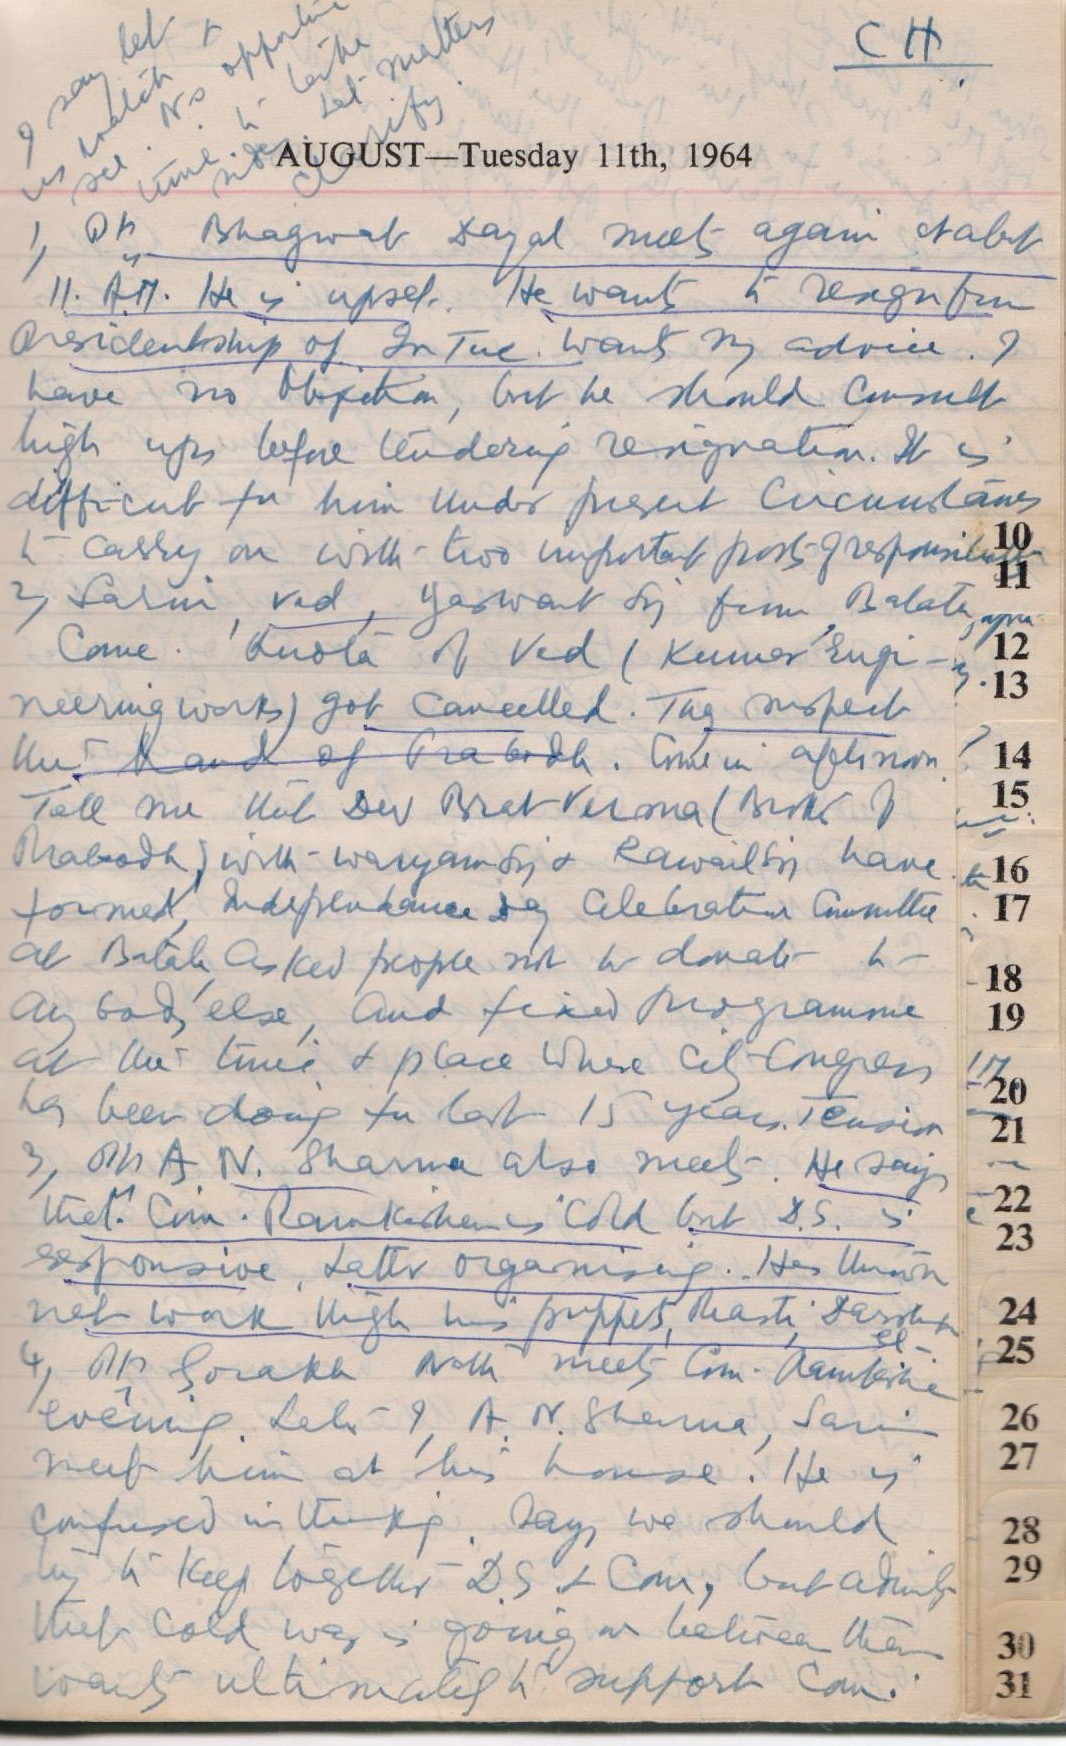 CH
I say let &
us watch
see. No opportune
time to take
sides. Let matters
clarify.
AUGUST—Tuesday 11th, 1964
1, Pt. Bhagwat Dayal meets again at about
11. A.M. He is upset. He wants to resign from
Presidentship of Intuc. wants my advice. I
have no objection, but he should consult
high ups before tendering resignation. It is
difficult for him under present circumstances
to carry on with two important posts of responsibility
2, Sarin, Ved, Yaswant Sij from Batala,
Come. Quota of Ved (Kumar Engi-
neering works) got cancelled. They suspect
the hand of Prabodh. Come in afternoon.
Tell me that Dev Brat Verma (Brother of
Prabodh) with waryam Sij & Rawail Sij have
formed, Independance Day Celebration Committee
at Batala, asked people not to donate to
any body else, and fixed programme
at the time & place where City Congress
has been doing for last 15 years. Tension
3, Pt. A. N. Sharma also meets. He says
that Com. Ramkishen is cold but D.S. is
responsive. Latter organising. Has thrown
net work through his puppets,
4, Pt. Gorakh Nath meets Com. Ramkishen
evening. Later I, A. N. Sharma, Sarin
meet him at his house. He is
confused in thinking. Says we should
try to keep together D.S. & Com, but admits
that cold war is going on between them
wants ultimately to support Com.
10
11
12
13
14
15
16
17
18
19
20
21
22
23
24
25
26
27
28
29
30
31